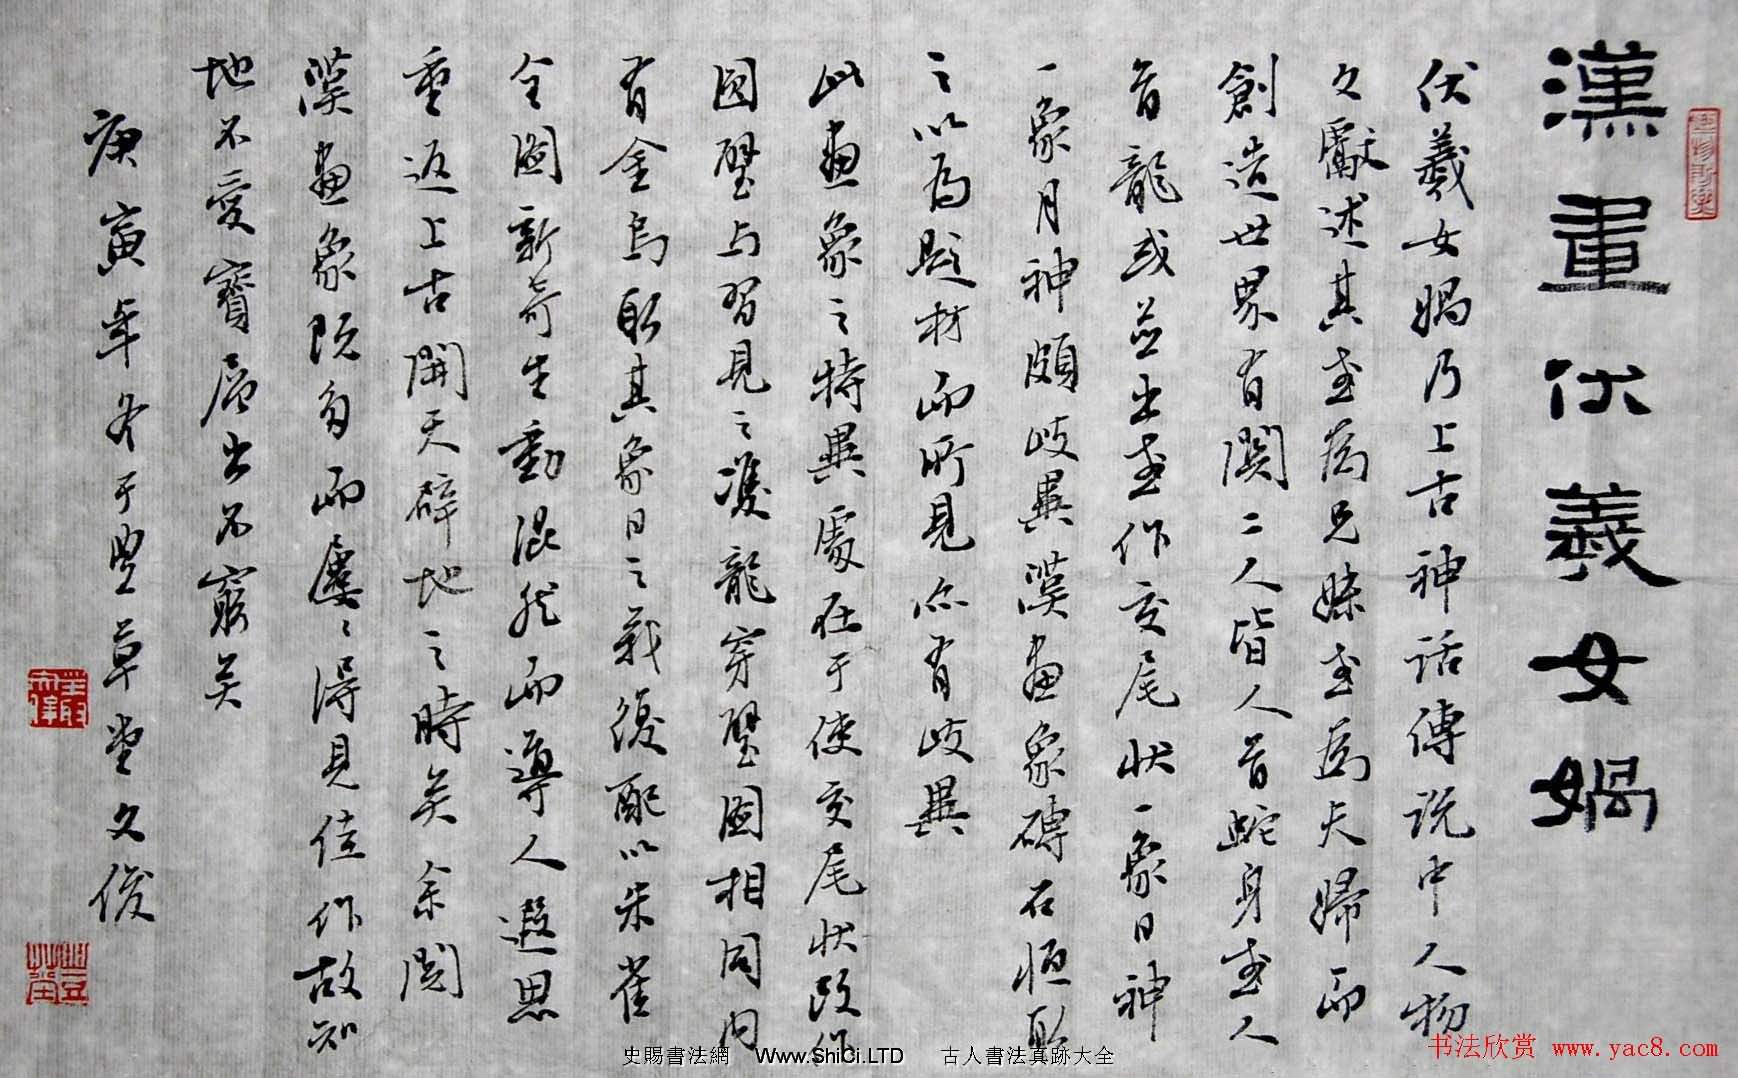 漢畫伏羲女媧
伏羲女媧乃上古神話傳說中人物
文獻述其或為兄妹或為夫婦而
創造世界有關二人皆人首蛇身或人
首龍或並出或作交尾狀一象日神
一象月神頗歧異漢畫象磚石恒取
之以為題材而所見亦有歧異
此畫象之特異處在于使交尾狀改作
圓璧与習見之雙龍穿璧圖相同内
有金烏取其象日之義復配以朱雀
全圖新奇生動混然而導人遐思
重返上古開天辟地之時矣余閱
漢畫象既多而屢〻得見佳作故知
地不愛寶層出不窮矣
庚寅年冬于豐草堂文俊
史賜書法網 Www.ShiCi.LTD 古人書法真跡大全
书法欣赏 www.yac8.com